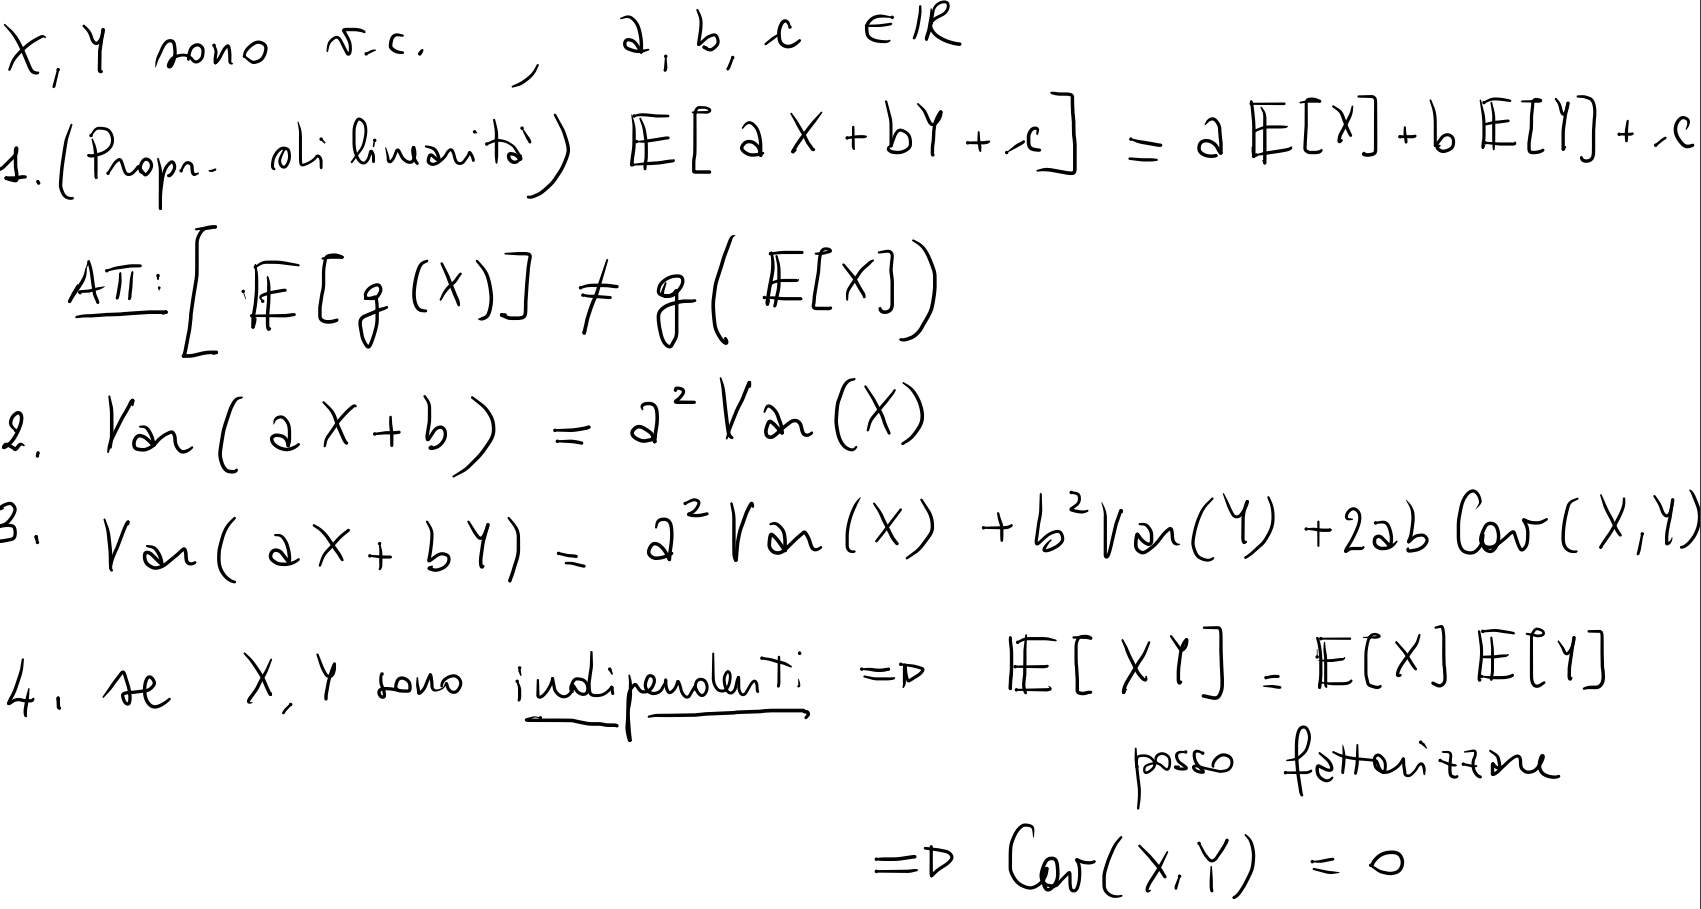 X, Y sono v.c. , a, b, c ∈ ℝ
1. (Propr. di linearità) 𝔼[aX + bY + c] = a 𝔼[X] + b 𝔼[Y] + c
ATT: [ 𝔼[g(X)] ≠ g(𝔼[X])
2. Var(aX + b) = a² Var(X)
3. Var(aX + bY) = a² Var(X) + b² Var(Y) + 2ab Cov(X,Y)
4. se X, Y sono indipendenti => 𝔼[XY] = 𝔼[X] 𝔼[Y]
posso fattorizzare
=> Cov(X,Y) = 0